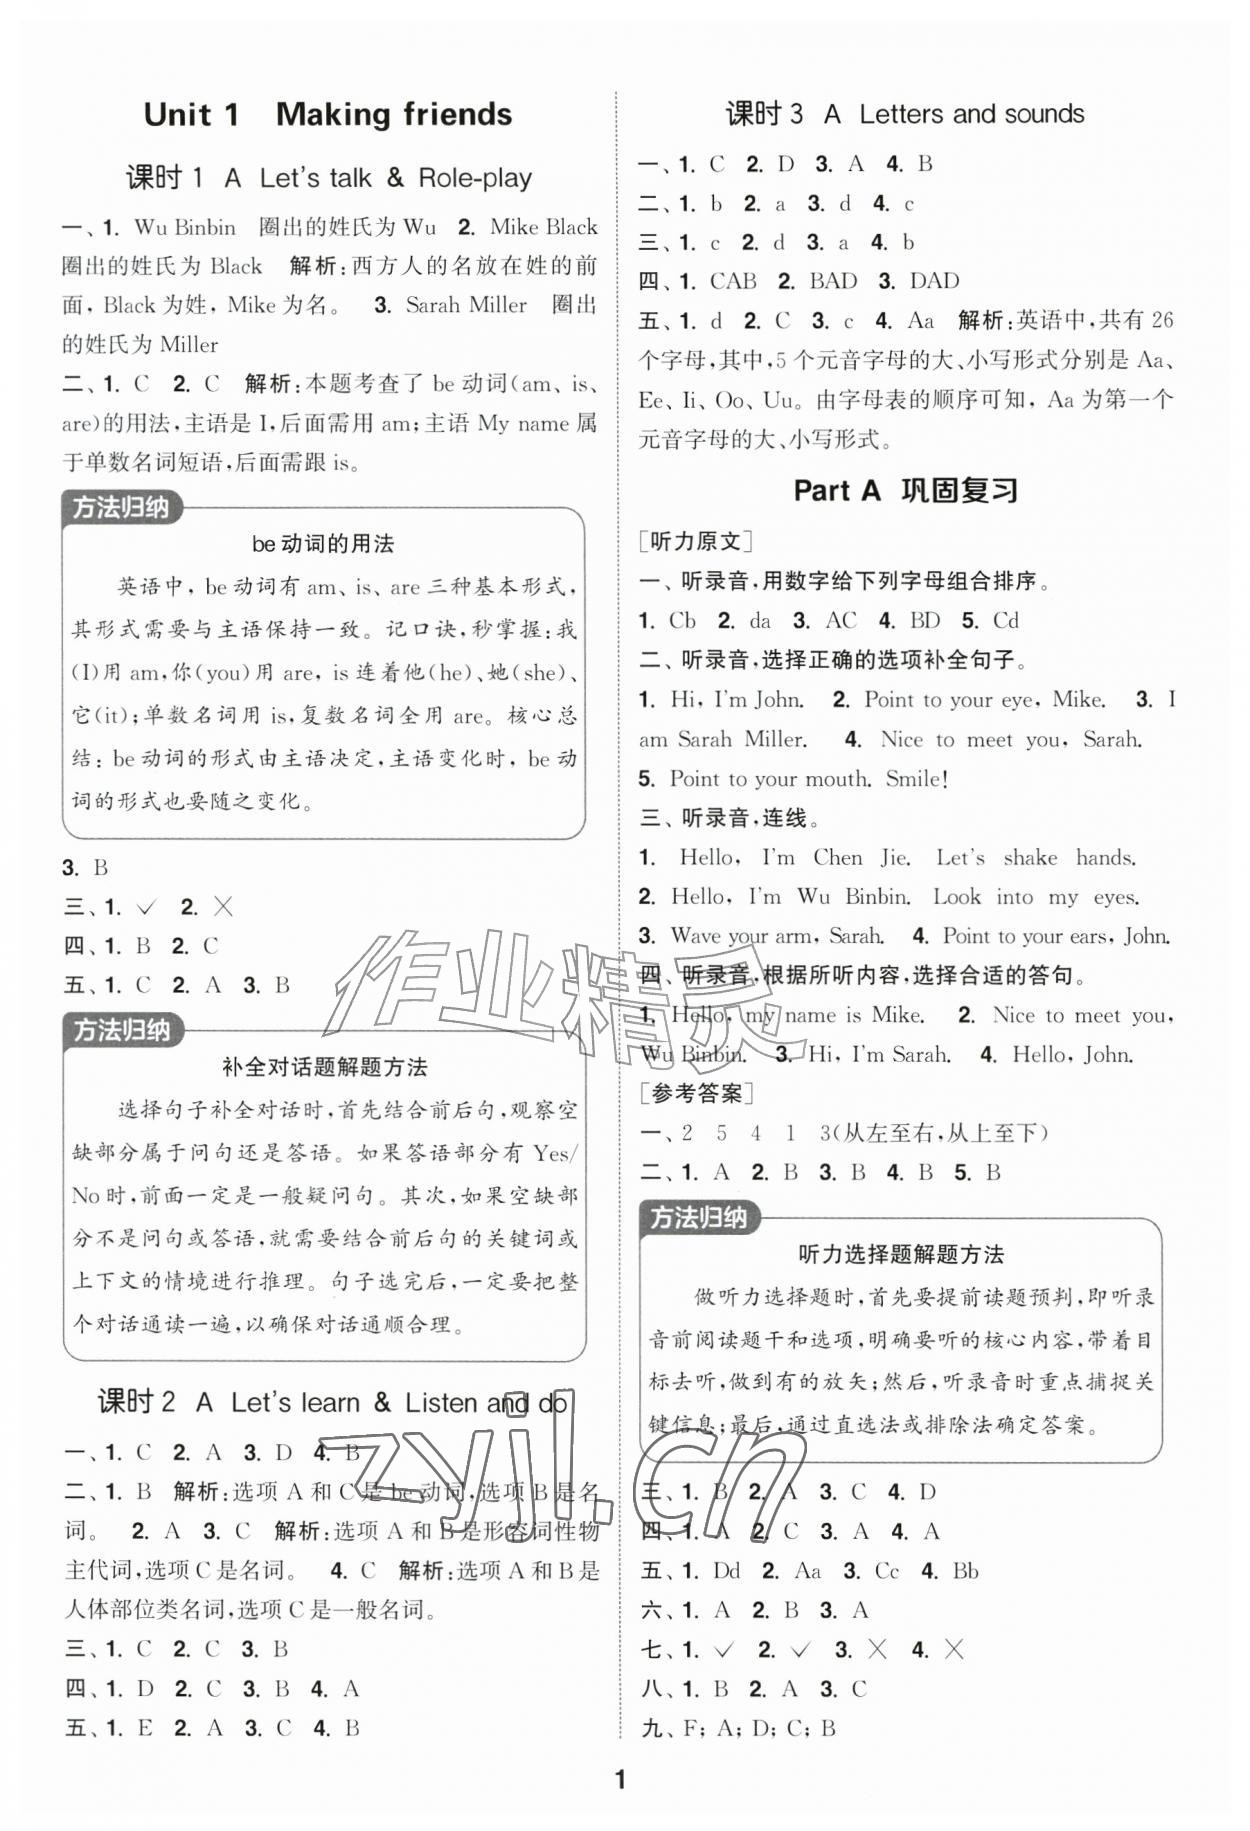 Unit 1 Making friends
课时 1 A Let's talk & Role-play
一、1. Wu Binbin 圈出的姓氏为 Wu 2. Mike Black
圈出的姓氏为 Black 解析:西方人的名放在姓的前
面，Black 为姓，Mike 为名。 3. Sarah Miller 圈出
的姓氏为 Miller
二、1. C 2. C 解析:本题考查了 be 动词(am、is、
are)的用法,主语是 I,后面需用 am;主语 My name 属
于单数名词短语,后面需跟 is。
方法归纳
be 动词的用法
英语中，be 动词有 am、is、are 三种基本形式,
其形式需要与主语保持一致。记口诀,秒掌握:我
(I)用 am,你(you)用 are，is 连着他(he)、她(she)、
它(it);单数名词用 is,复数名词全用 are。核心总
结: be 动词的形式由主语决定,主语变化时，be 动
词的形式也要随之变化。
3. B
三、1. ✓ 2. ×
四、1. B 2. C
五、1. C 2. A 3. B
方法归纳
补全对话题解题方法
选择句子补全对话时,首先结合前后句,观察空
缺部分属于问句还是答语。如果答语部分有 Yes/
No 时,前面一定是一般疑问句。其次,如果空缺部
分不是问句或答语,就需要结合前后句的关键词或
上下文的情境进行推理。句子选完后,一定要把整
个对话通读一遍,以确保对话通顺合理。
课时 2 A Let's learn & Listen and do
一、1. C 2. A 3. D 4. B
二、1. B 解析:选项 A 和 C 是 be 动词,选项 B 是名
词。 2. A 3. C 解析:选项 A 和 B 是形容词性物
主代词,选项 C 是名词。 4. C 解析:选项 A 和 B 是
人体部位类名词,选项 C 是一般名词。
三、1. C 2. C 3. B
四、1. D 2. C 3. B 4. A
五、1. E 2. A 3. C 4. B
课时 3 A Letters and sounds
一、1. C 2. D 3. A 4. B
二、1. b 2. a 3. d 4. c
三、1. c 2. d 3. a 4. b
四、1. CAB 2. BAD 3. DAD
五、1. d 2. C 3. c 4. Aa 解析:英语中,共有 26
个字母,其中,5 个元音字母的大、小写形式分别是 Aa、
Ee、Ii、Oo、Uu。由字母表的顺序可知，Aa 为第一个
元音字母的大、小写形式。
Part A 巩固复习
[听力原文]
一、听录音,用数字给下列字母组合排序。
1. Cb 2. da 3. AC 4. BD 5. Cd
二、听录音,选择正确的选项补全句子。
1. Hi, I'm John. 2. Point to your eye, Mike. 3. I
am Sarah Miller. 4. Nice to meet you, Sarah.
5. Point to your mouth. Smile!
三、听录音,连线。
1. Hello, I'm Chen Jie. Let's shake hands.
2. Hello, I'm Wu Binbin. Look into my eyes.
3. Wave your arm, Sarah. 4. Point to your ears, John.
四、听录音,根据所听内容,选择合适的答句。
1. Hello, my name is Mike. 2. Nice to meet you,
Wu Binbin. 3. Hi, I'm Sarah. 4. Hello, John.
[参考答案]
一、2 5 4 1 3(从左至右,从上至下)
二、1. A 2. B 3. B 4. B 5. B
方法归纳
听力选择题解题方法
做听力选择题时,首先要提前读题预判,即听录
音前阅读题干和选项,明确要听的核心内容,带着目
标去听,做到有的放矢;然后,听录音时重点捕捉关
键信息;最后,通过直选法或排除法确定答案。
三、1. B 2. A 3. C 4. D
四、1. A 2. C 3. A 4. A
五、1. Dd 2. Aa 3. Cc 4. Bb
六、1. A 2. B 3. A
七、1. ✓ 2. ✓ 3. × 4. ×
八、1. B 2. A 3. C
九、F; A; D; C; B
1
作业精灵
zyjl.cn